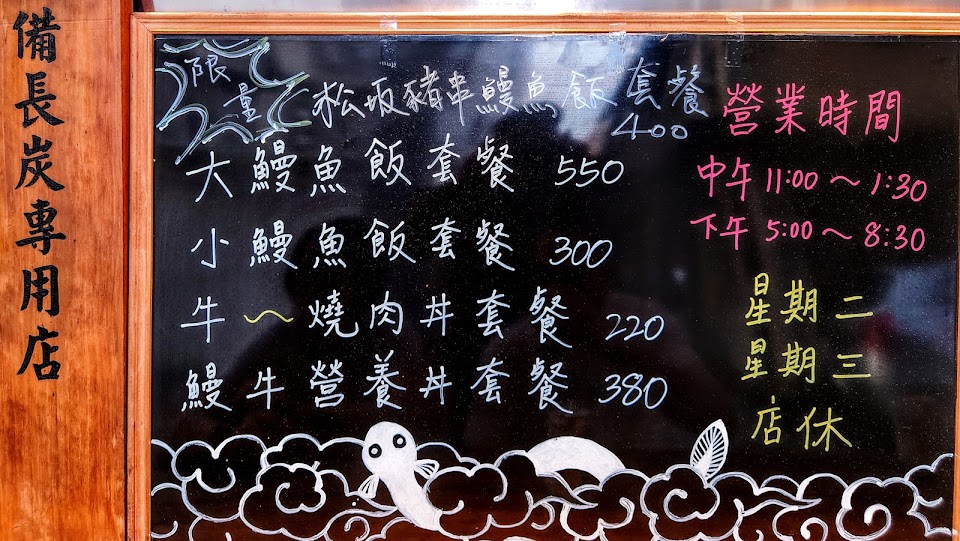 備長炭專用店
限量
松坂豬串鰻魚飯套餐
400
大鰻魚飯套餐 550
小鰻魚飯套餐 300
牛～燒肉丼套餐 220
鰻牛營養丼套餐 380
營業時間
中午 11:00～1:30
下午 5:00～8:30
星期二
星期三
店休